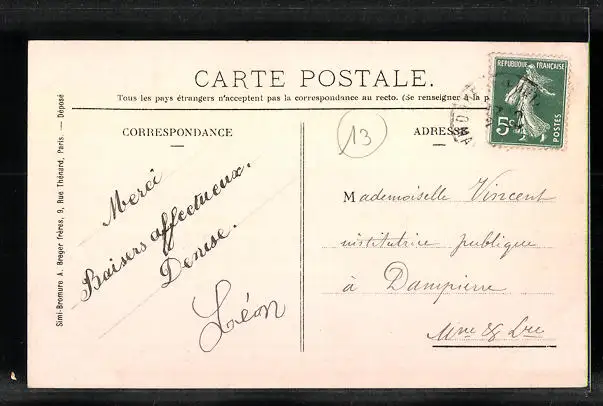 CARTE POSTALE.
Tous les pays étrangers n'acceptent pas la correspondance au recto. (Se renseigner à la p
CORRESPONDANCE
ADRESSE
13
RÉPUBLIQUE FRANÇAISE
5c
POSTES
Simi-Bromure A. Breger frères, 9, Rue Thénard, Paris. — Déposé
Merci
Baisers affectueux.
Denise.
Léon
Mademoiselle Vincent
institutrice publique
à Dampierre
Mne & Lre